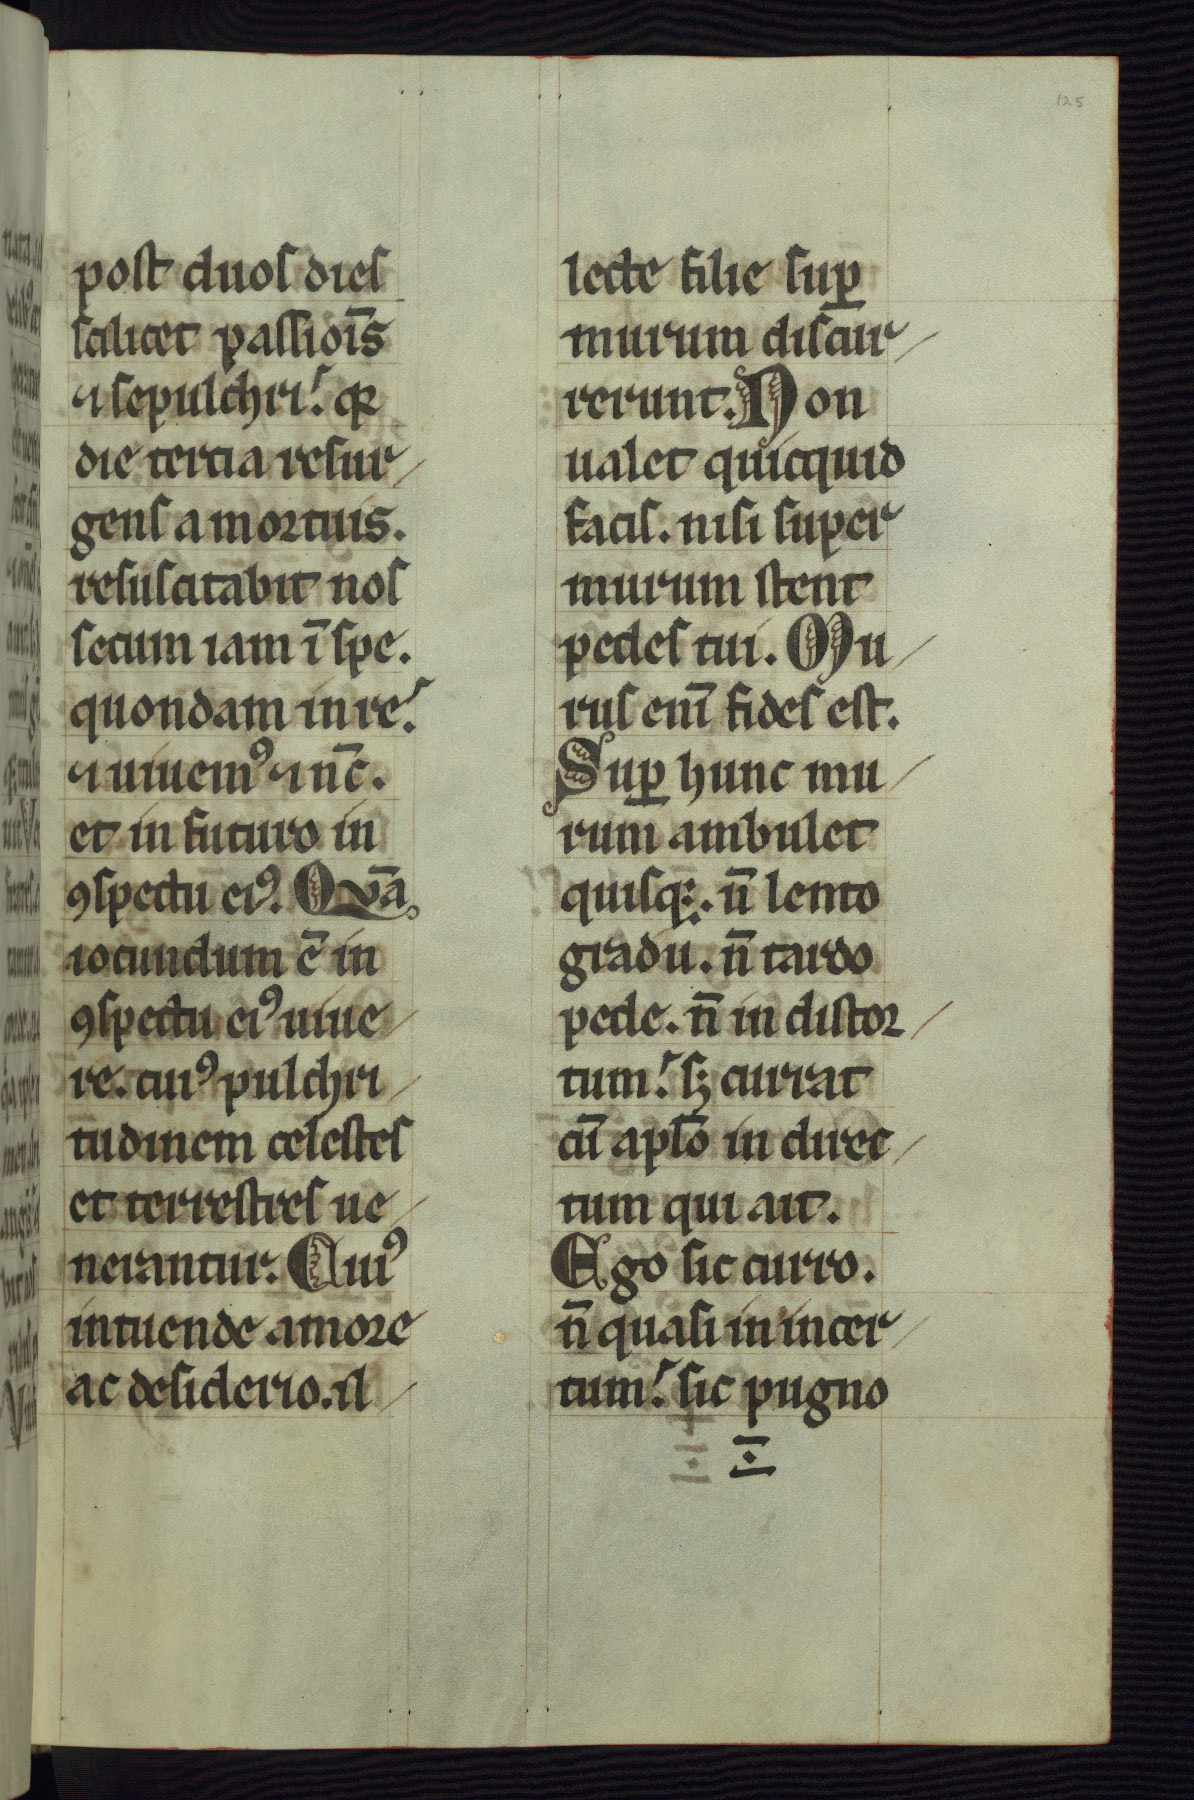 125
post duos dies
scilicet passiois̄
⁊ sepulchri. qꝛ
die tercia resur
gens a mortuis.
resuscitabit nos
secum iam ī spe.
quondam in re.
⁊ uiuemꝰ ⁊ nc̄.
et in futuro in
ꝯspectu eiꝰ. Qvā
iocundum ē in
ꝯspectu eiꝰ uiue
re. cuiꝰ pulchri
tudinem celestes
et terrestres ue
nerantur. Cuiꝰ
intuende amore
ac desiderio. il
lecte filie suꝑ
murum discur
rerunt. Non
ualet quicquid
facis. nisi super
murum stent
pedes tui. Mu
rus enī fides est.
Suꝑ hunc mu
rum ambulet
quisqꝫ. n̄ lento
gradu. n̄ tardo
pede. n̄ in distor
tum. sꝫ currat
cū apło in direc
tum qui ait.
Ego sic curro.
n̄ quasi in incer
tum. sic pugno